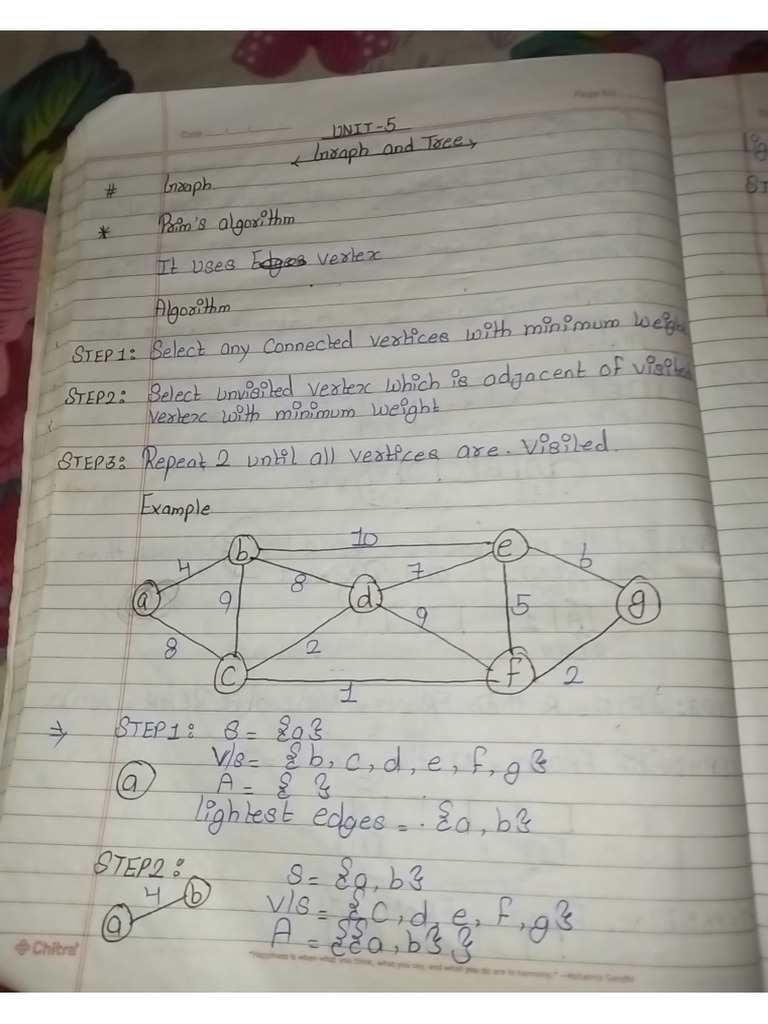 Date / /
Page No.
UNIT-5
Graph and Tree
# Graph
* Prim's algorithm
It uses Edges vertex
Algorithm
STEP1: Select any Connected vertices with minimum weigh
STEP2: Select unvisited vertex which is adjacent of visited
vertex with minimum weight
STEP3: Repeat 2 until all vertices are. Visiled.
Example
b 10 e
4 8 7 6
a 9 d 9 5 g
8 2 2
c 1 f
⇒ STEP1: S = {a}
V/s = {b, c, d, e, f, g}
a A = { }
lightest edges = {a, b}
STEP2: S = {a, b}
a 4 b V/s = {C, d, e, f, g}
A = {{a, b} }
Chitra
"Happiness is when what you think, what you say, and what you do are in harmony." -Mahatma Gandhi